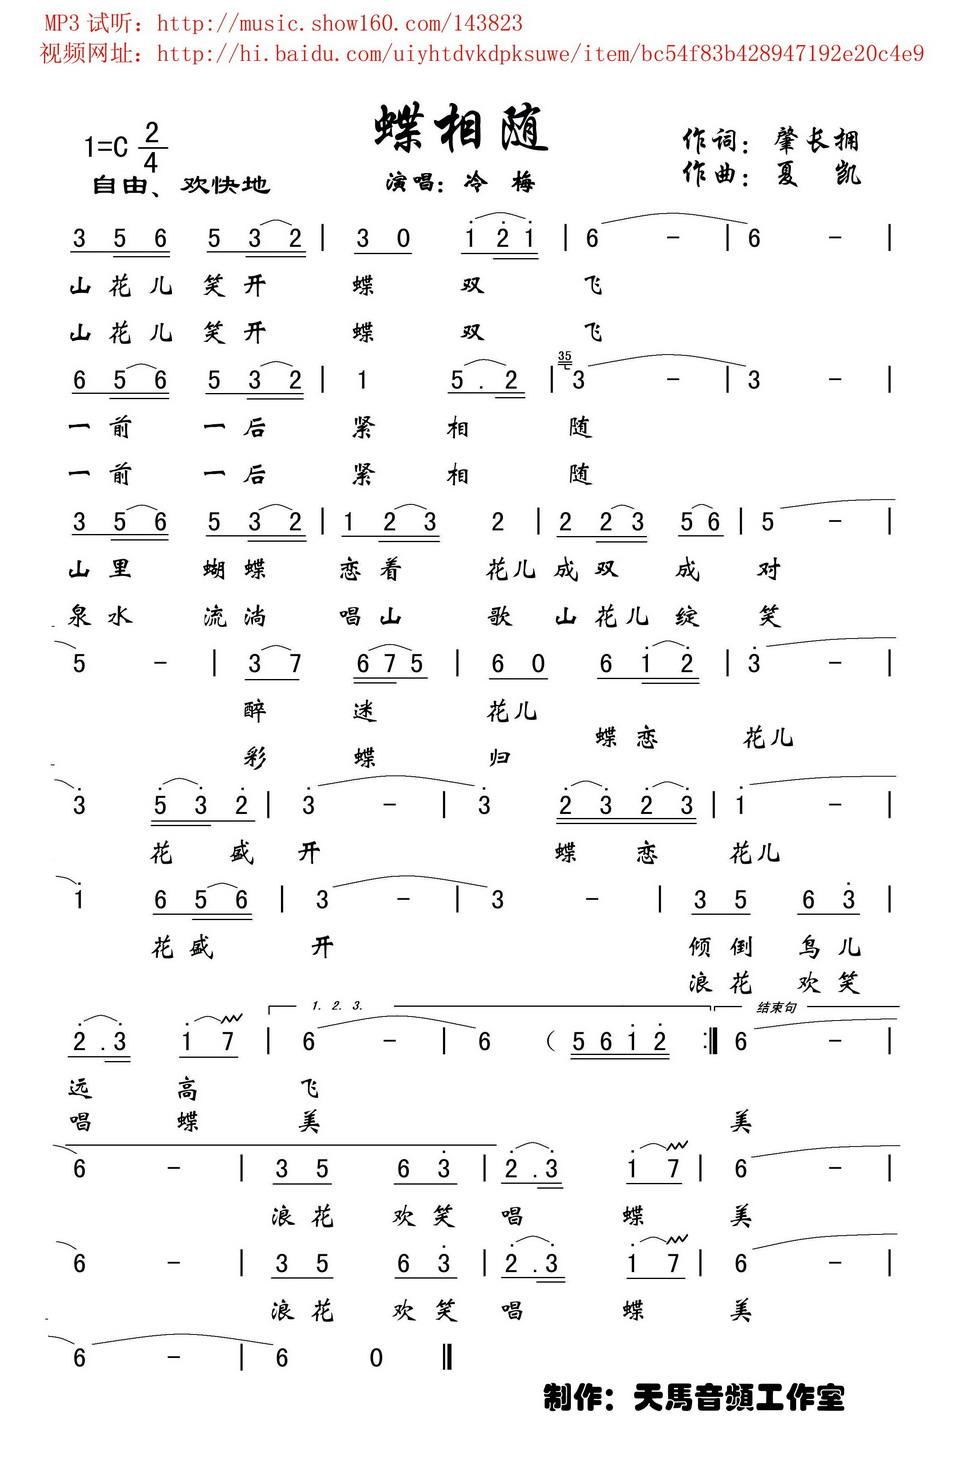 MP3 试听：http://music.show160.com/143823
视频网址：http://hi.baidu.com/uiyhtdvkdpksuwe/item/bc54f83b428947192e20c4e9
蝶相随
1=C 2/4
作词：肇长拥
自由、欢快地
演唱：冷 梅
作曲：夏 凯
3 5 6 5 3 2 | 3 0 1 2 1 | 6 － | 6 － |
山 花 儿 笑 开 蝶 双 飞
山 花 儿 笑 开 蝶 双 飞
6 5 6 5 3 2 | 1 5 . 2 | 35 3 － | 3 － |
一 前 一 后 紧 相 随
一 前 一 后 紧 相 随
3 5 6 5 3 2 | 1 2 3 2 | 2 2 3 5 6 | 5 － |
山 里 蝴 蝶 恋 着 花儿 成 双 成 对
泉 水 流 淌 唱 山 歌 山 花儿 绽 笑
5 － | 3 7 6 7 5 | 6 0 6 1 2 | 3 － |
醉 迷 花儿
蝶 恋 花儿
彩 蝶 归
3 5 3 2 | 3 － | 3 2 3 2 3 | 1 － |
花 盛 开 蝶 恋 花儿
1 6 5 6 | 3 － | 3 － | 3 5 6 3 |
花 盛 开 倾 倒 鸟 儿
浪 花 欢 笑
1. 2. 3. 结束句
2 . 3 1 7 | 6 － | 6 （ 5 6 1 2 :‖ 6 － |
远 高 飞
唱 蝶 美 美
6 － | 3 5 6 3 | 2 . 3 1 7 | 6 － |
浪 花 欢 笑 唱 蝶 美
6 － | 3 5 6 3 | 2 . 3 1 7 | 6 － |
浪 花 欢 笑 唱 蝶 美
6 － | 6 0 ‖
制作：天馬音頻工作室